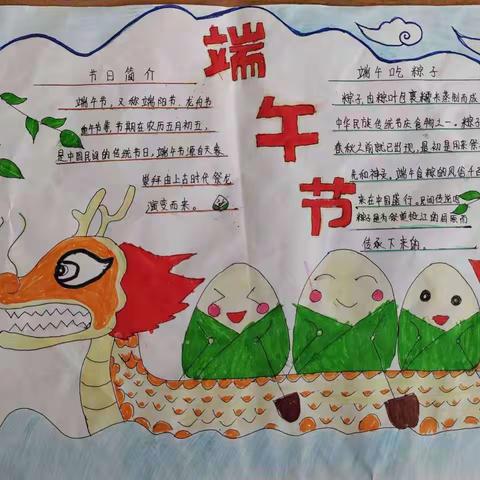 端午节
节日简介
端午节，又称端阳节、龙舟节
节期在农历五月初五，
是中国民间的传统节日，端午节源自天象
崇拜由上古时代祭龙
演变而来。
端午吃粽子
粽子由粽叶包裹糯米蒸制而成
中华民族传统节庆食物之一。粽子
春秋之前就已出现，最初是用来祭
先和神灵，端午食粽的风俗千百
来在中国盛行，民间传说吃
粽子是为祭奠投江的屈原而
传承下来的。